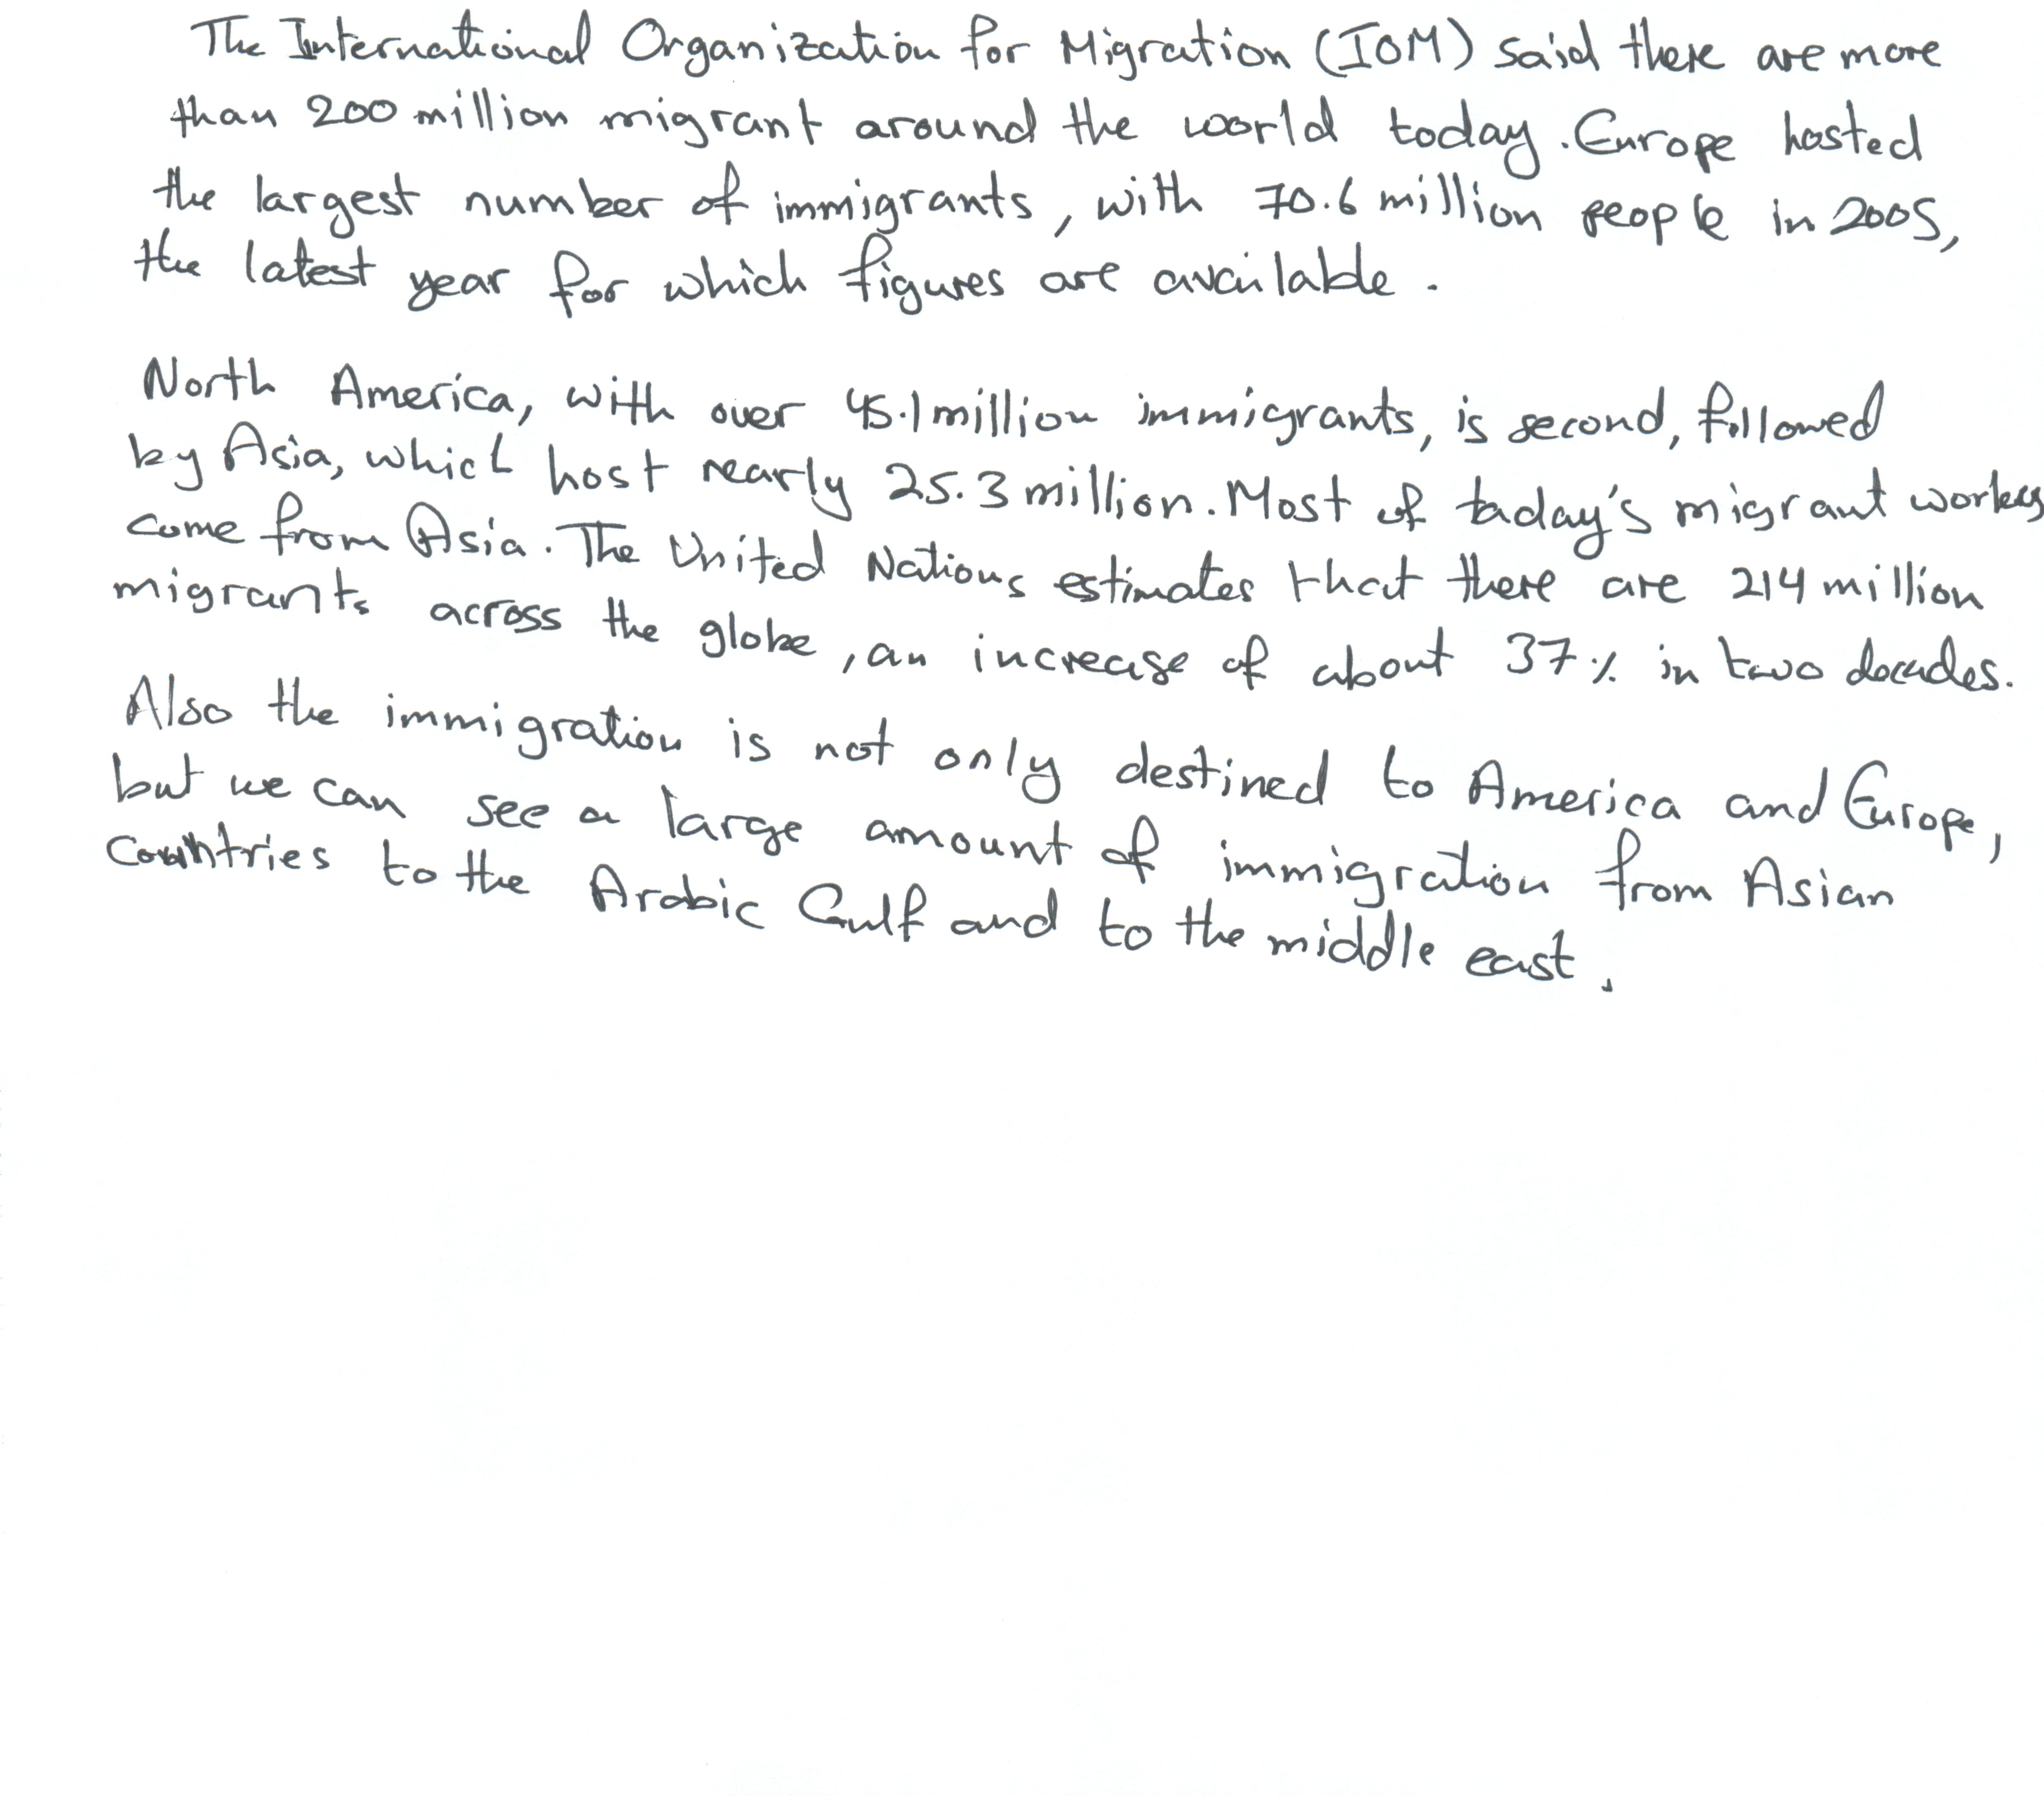 The International Organization for Migration (IOM) said there are more
than 200 million migrant around the world today. Europe hosted
the largest number of immigrants, with 70.6 million people in 2005,
the latest year for which figures are available.
North America, with over 45.1 million immigrants, is second, followed
by Asia, which host nearly 25.3 million. Most of today's migrant workers
come from Asia. The United Nations estimates that there are 214 million
migrants across the globe, an increase of about 37% in two decades.
Also the immigration is not only destined to America and Europe,
but we can see a large amount of immigration from Asian
countries to the Arabic Gulf and to the middle east.